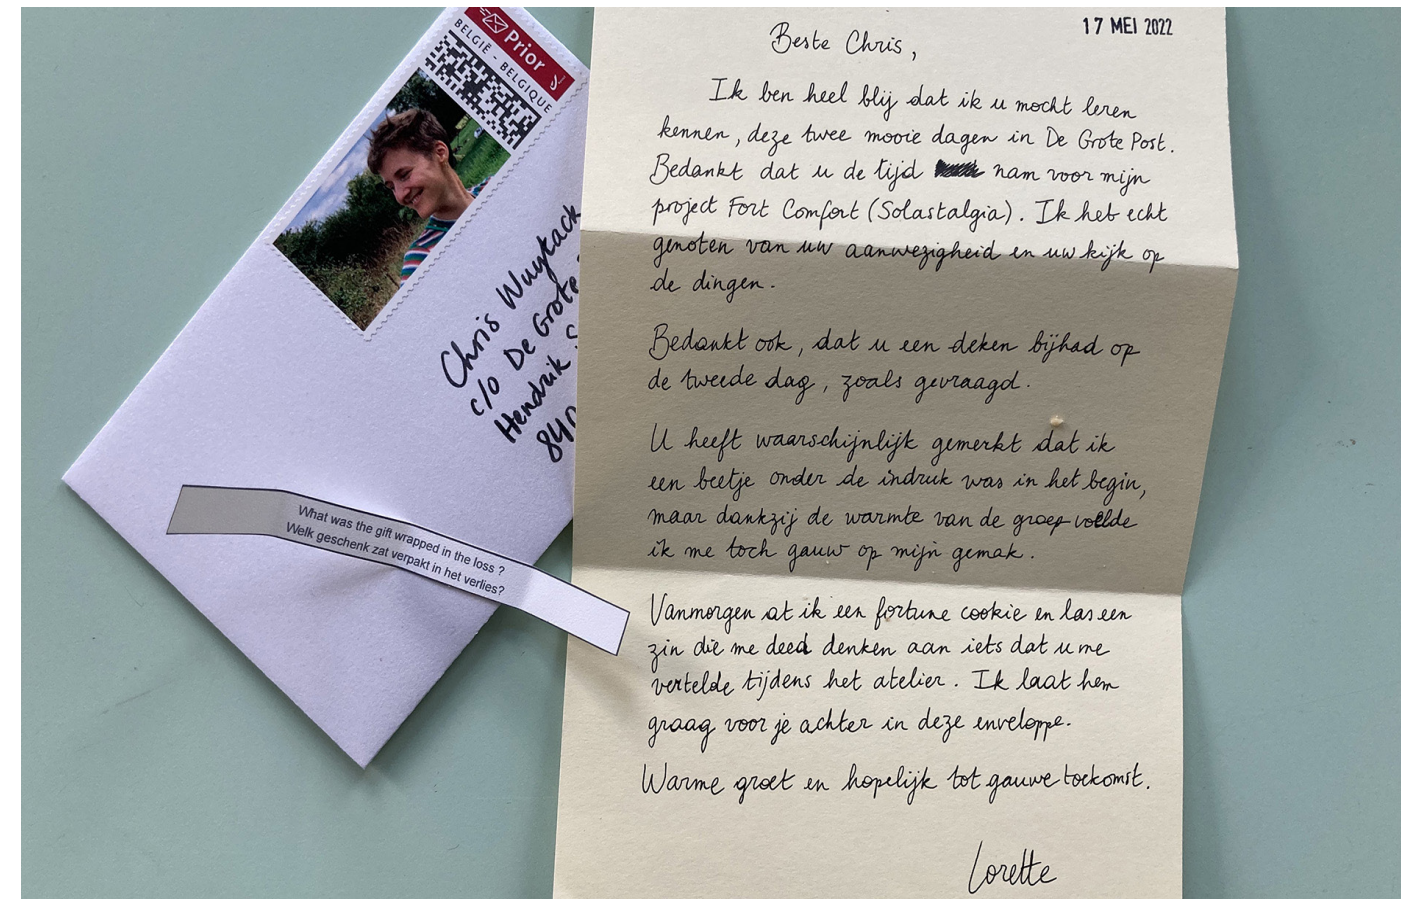 Prior
BELGIË - BELGIQUE
Chris
c/o De Grote
Hendrik
What was the gift wrapped in the loss ?
Welk geschenk zat verpakt in het verlies?
17 MEI 2022
Beste Chris,
Ik ben heel blij dat ik u mocht leren
kennen, deze twee mooie dagen in De Grote Post.
Bedankt dat u de tijd nam voor mijn
project Fort Comfort (Solastalgia). Ik heb echt
genoten van uw aanwezigheid en uw kijk op
de dingen.
Bedankt ook, dat u een deken bijhad op
de tweede dag, zoals gevraagd.
U heeft waarschijnlijk gemerkt dat ik
een beetje onder de indruk was in het begin,
maar dankzij de warmte van de groep voelde
ik me toch gauw op mijn gemak.
Vanmorgen at ik een fortune cookie en las een
zin die me deed denken aan iets dat u me
vertelde tijdens het atelier. Ik laat hem
graag voor je achter in deze enveloppe.
Warme groet en hopelijk tot gauwe toekomst.
Lorette